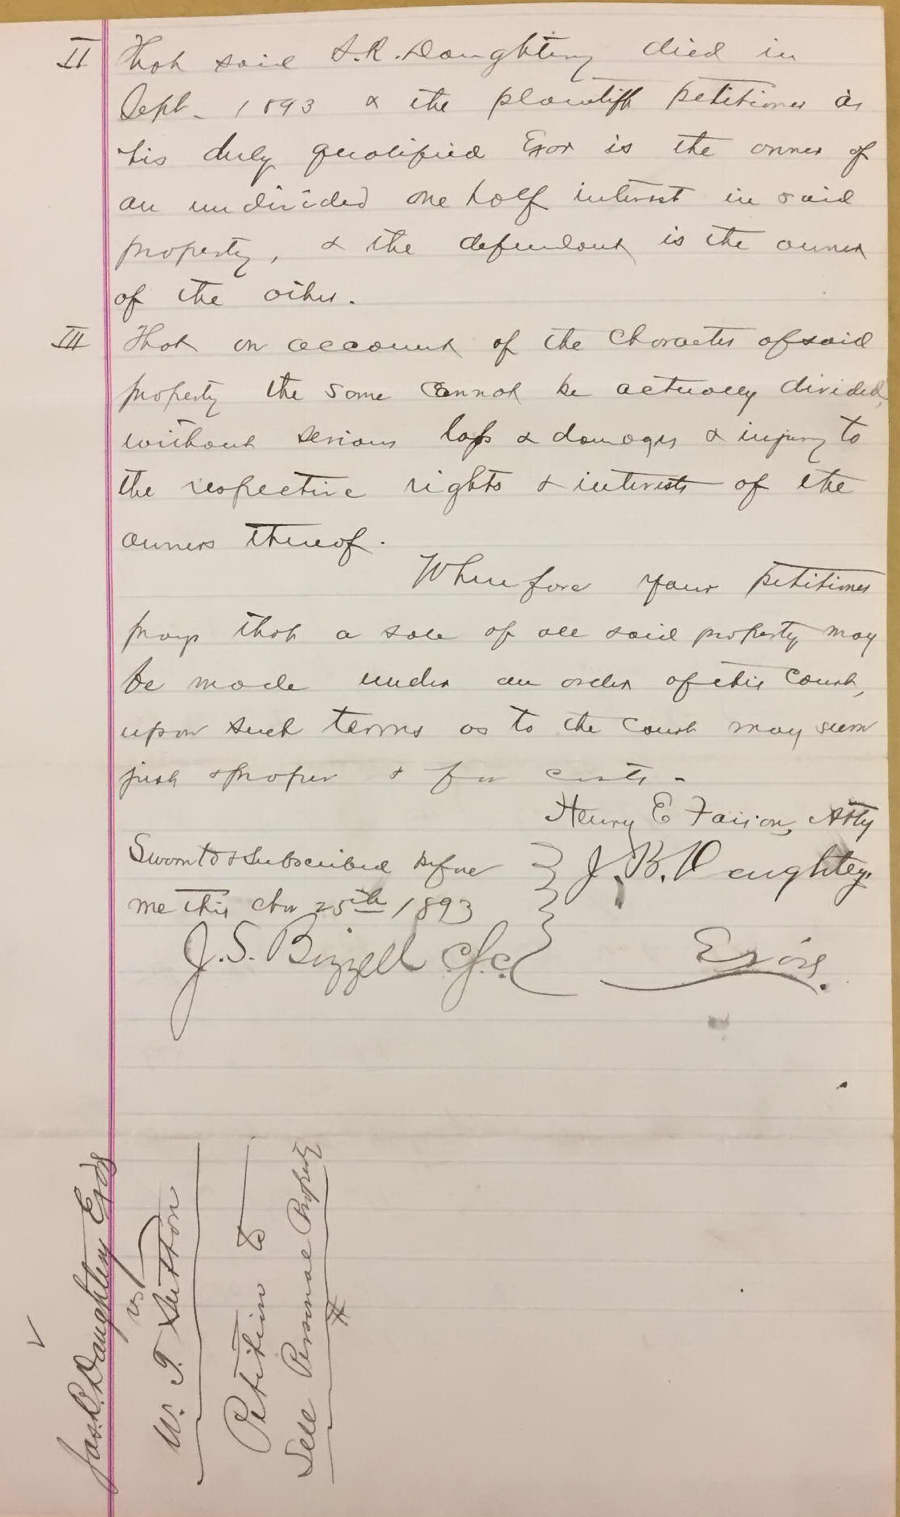 II That said S.R. Daughtery died in
Sept. 1893 & the plaintiff petitioner as
his duly qualified Exor is the owner of
an undivided one half interest in said
property, & the defendant is the owner
of the other.
III That on account of the character of said
property the same cannot be actually divided,
without serious loss & damages & injury to
the respective rights & interests of the
owners thereof.
Wherefore your petitioner
prays that a sale of all said property may
be made under an order of this Court,
upon such terms as to the Court may seem
just & proper & for costs.
Henry E Faison, Atty
Sworn to & subscribed before
me this 25th 1893
J. B. Daughtey.
J. S. Bizzell C.S.C.
Exor.
Jas. B. Daughtery Exor
vs
W. T. Sutton
Petition to
Sell Personal Property